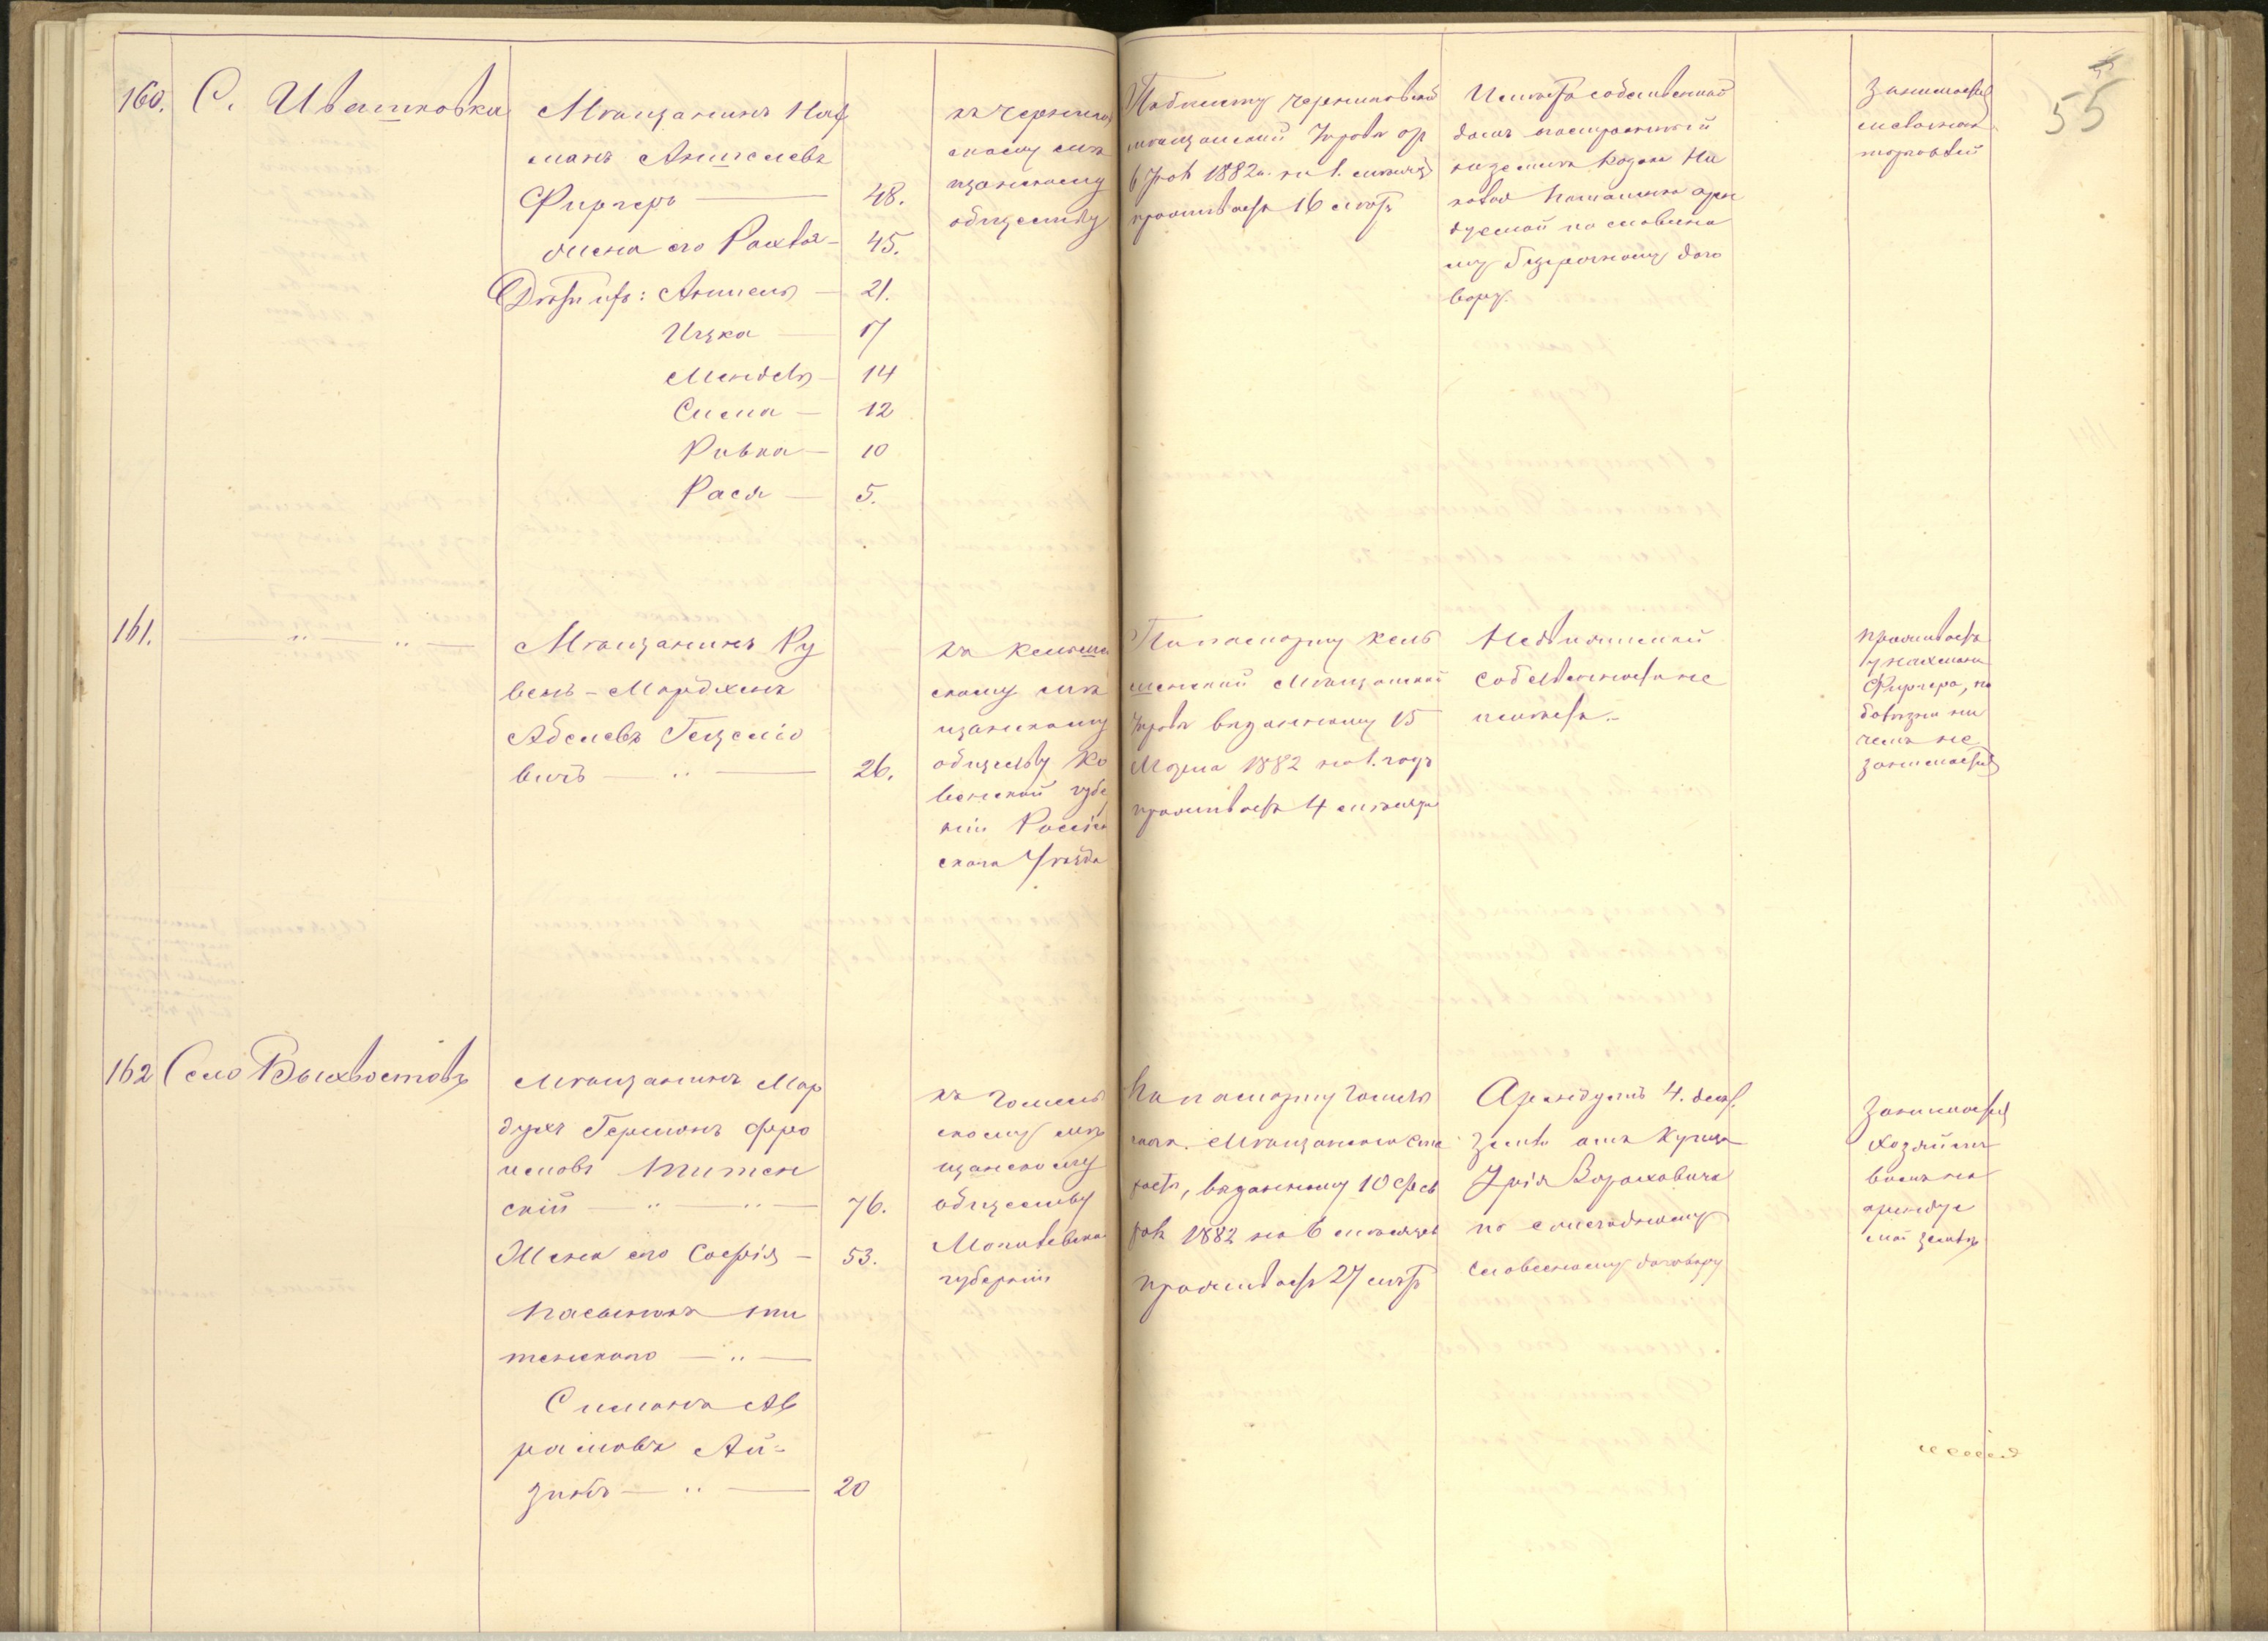 55
160.
С. Ивашковка
Мѣщанинъ Нах
манъ Аншелевъ
Фирчеръ — 48.
жена его Рахля — 45.
Дѣти ихъ: Аншель — 21.
Ицка — 17
Мендель — 14
Сима — 12
Ривка — 10
Рася — 5.
къ Чернигов
скому мѣ
щанскому
обществу
По билету Черниговской
мѣщанской Управы от
6 1882 г. на 1. мѣсяцъ
проживаетъ 16 лѣтъ
Имѣетъ собственный
домъ построенный
на землѣ Козака
арен
дуемой по словесно
му безсрочному дого
вору.
Занимается
мелочною
торговлей
161.
— " — " —
Мѣщанинъ Ру
венъ-Мордхенъ
Абелевъ Гецело
вичъ — " — 26.
къ Кельмен
скому мѣ
щанскому
обществу Ко
венской губер
ніи Россіен
скаго Уѣзда
По паспорту Кель
менской Мѣщанской
Управы выданному 15
Марта 1882 на 1. годъ
проживаетъ 4 мѣсяца
Недвижимой
собственности не
имѣетъ.
проживаетъ
у Нахмана
Фирчера, по
болѣзни ни
чемъ не
занимается
162
Село Выхвостовъ
Мѣщанинъ Мор
духъ Германъ
Шитен
скій — " — " — 76.
Жена его Софія — 53.
пасынокъ Ши
тенскаго — " —
Симонъ Аб
рамовъ Ай-
зинъ — " — 20
къ Гомель
скому мѣ
щанскому
обществу
Могилевской
губерніи
По паспорту Гомель
скаго Мѣщанскаго Ста
росты, выданному 10 Фев
раля 1882 на 6 мѣсяцевъ
проживаетъ 27 лѣтъ
Арендуетъ 4. дес.
земли отъ Купца
Юрія Вораховича
по ежегодному
словесному договору
Занимается
хозяйст
вомъ на
арендуе
мой землѣ